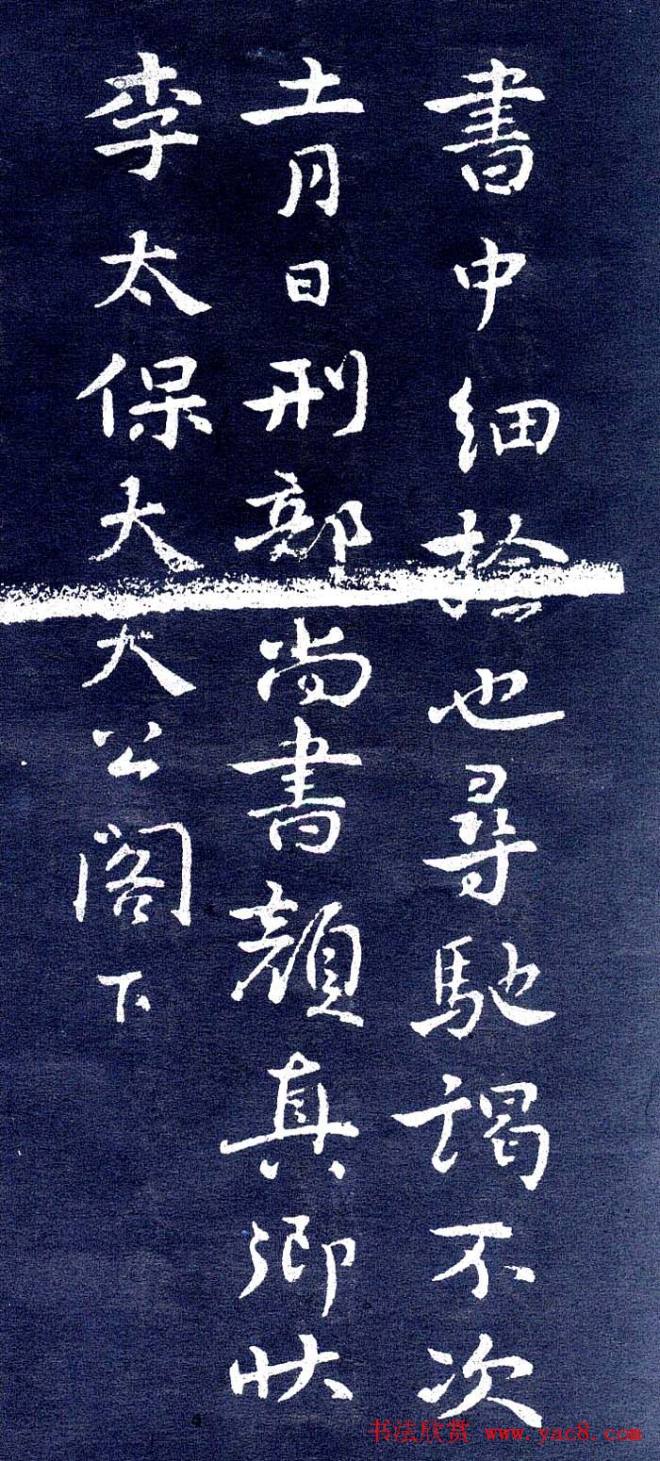 書中細撿也尋馳謁不次
十一月日刑部尚書顔真卿狀
李太保大夫公閣下
书法欣赏 www.yac8.com